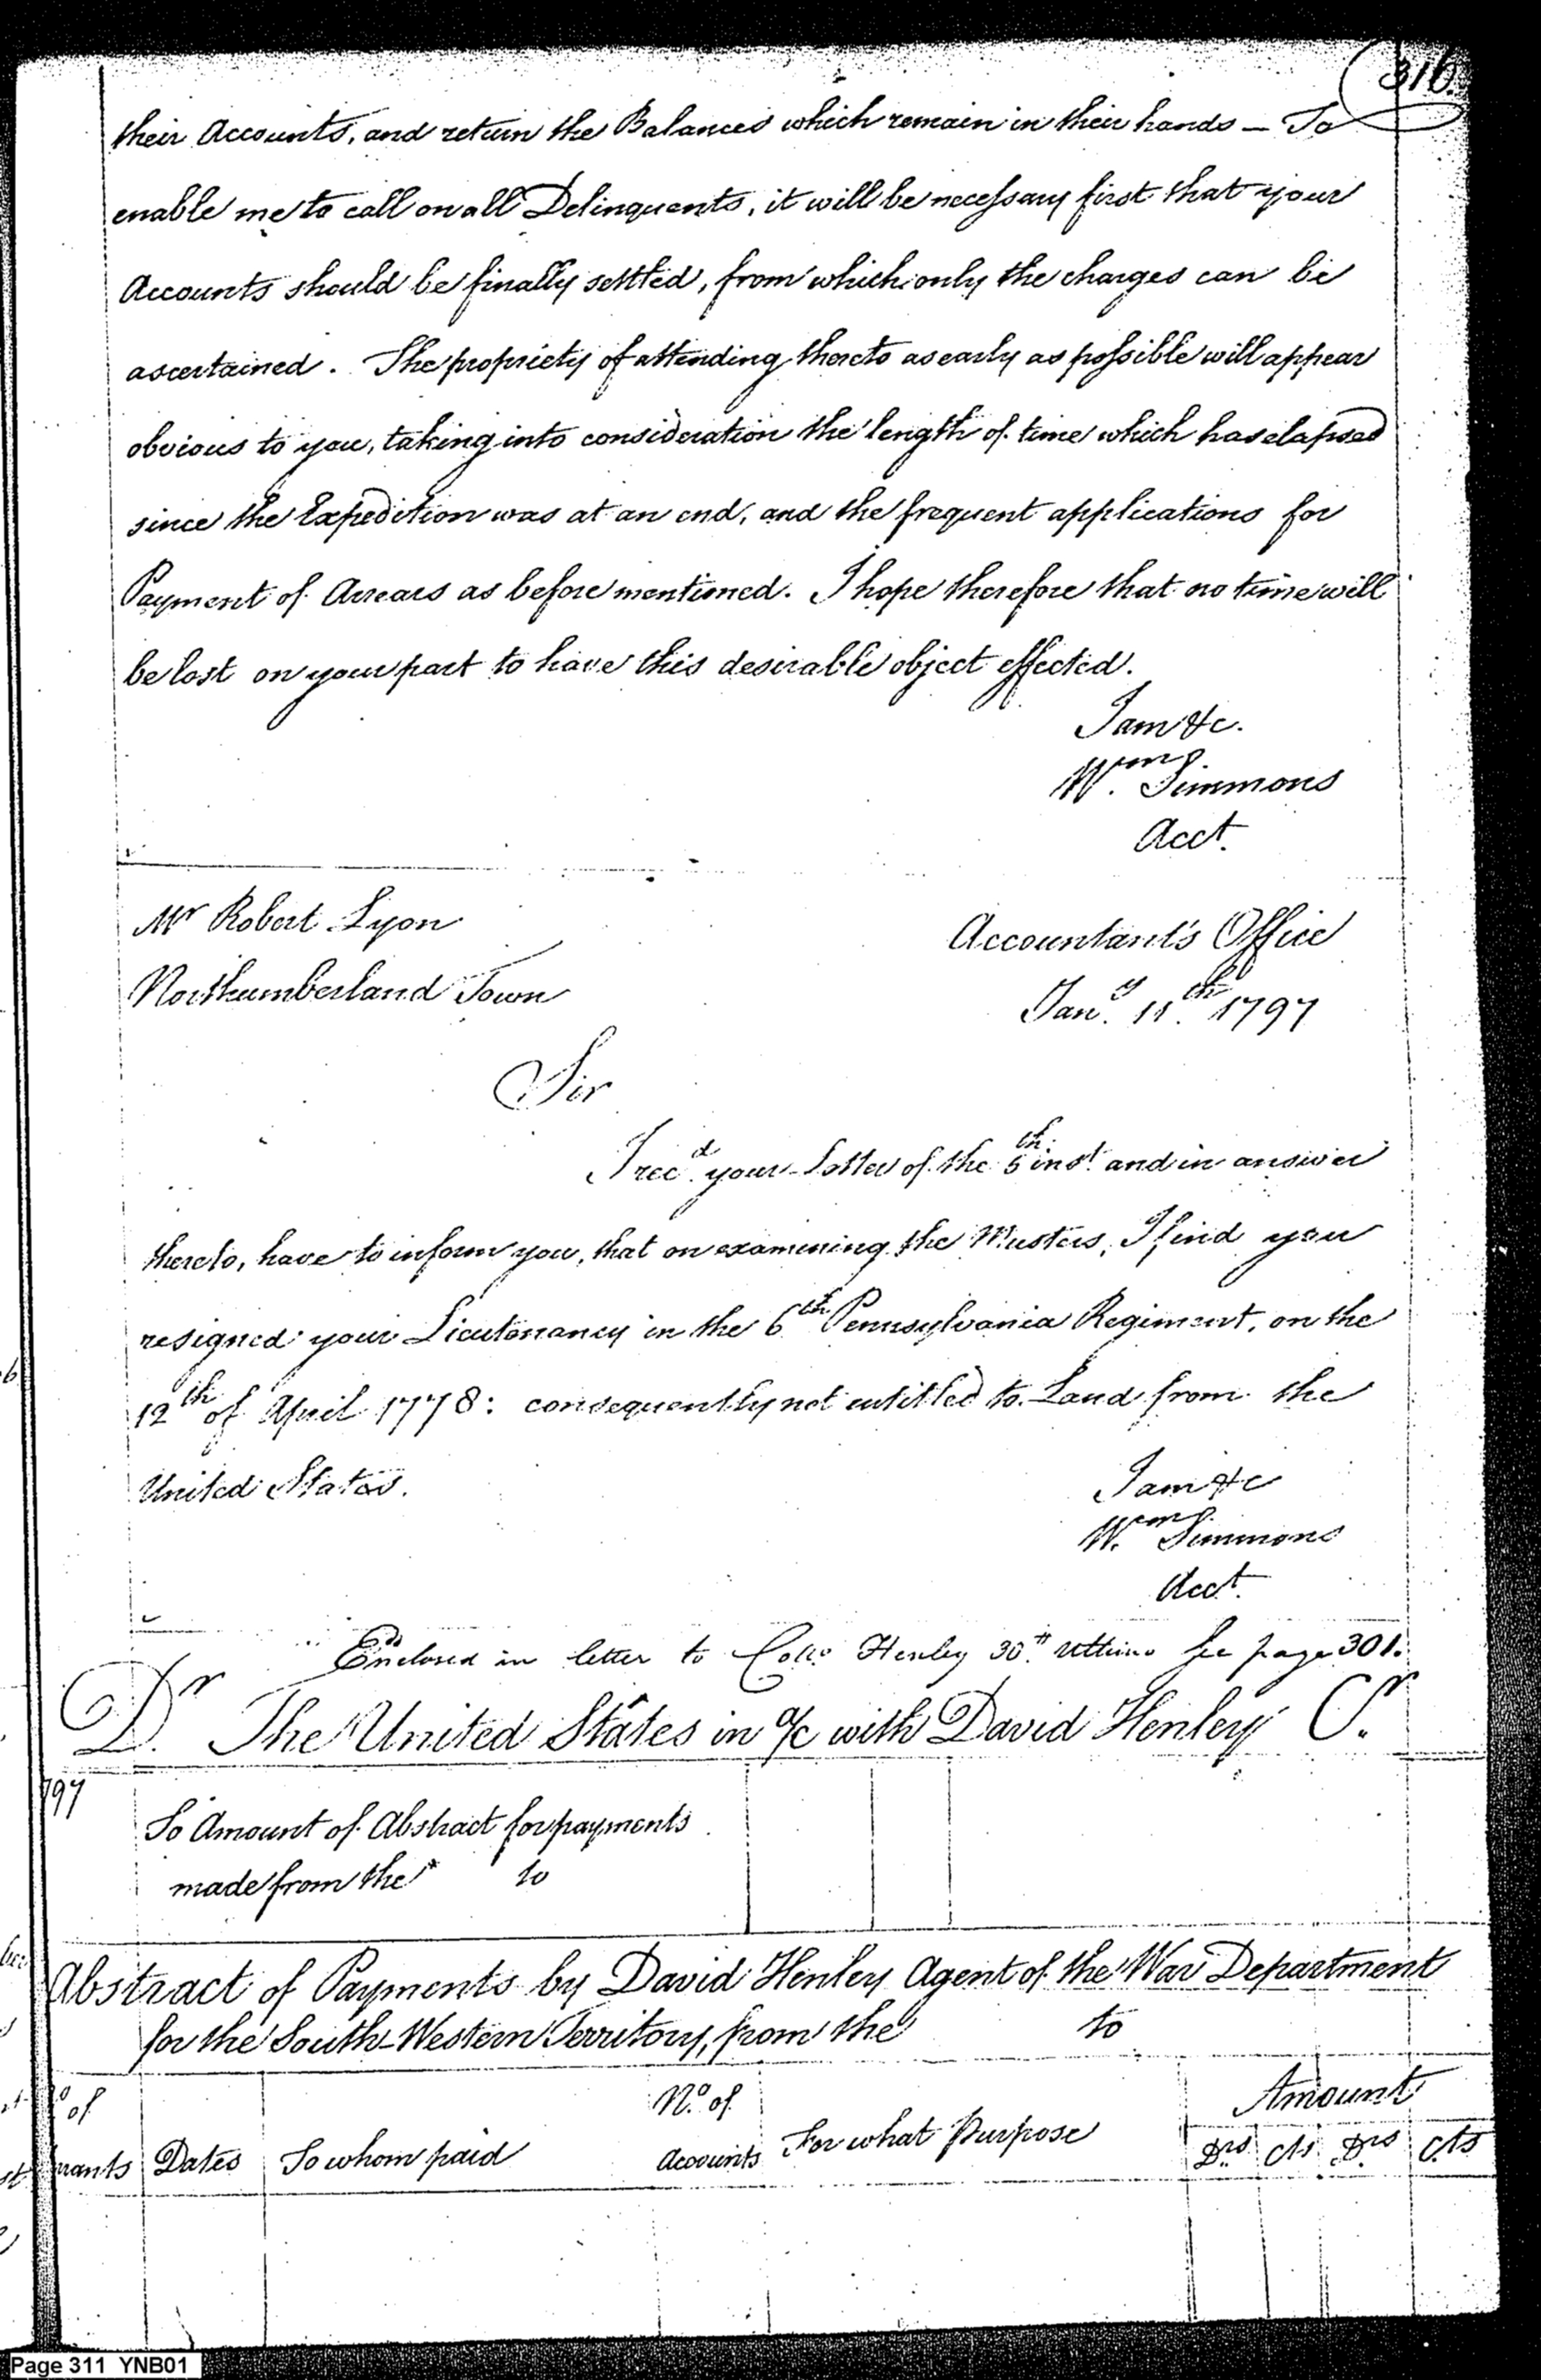 316.
their Accounts, and return the Balances which remain in their hands – To
enable me to call on all Delinquents, it will be necessary first that your
Accounts should be finally settled, from which only the charges can be
ascertained. The propriety of attending thereto as early as possible will appear
obvious to you, taking into consideration the length of time which has elapsed
since the Expedition was at an end, and the frequent applications for
Payment of Arrears as before mentioned. I hope therefore that no time will
be lost on your part to have this desirable object effected.
I am &c.
Wm Simmons
Acct.
Mr Robert Lyon
Northumberland Town
Accountant's Office
Jany. 11th. 1797
Sir
I recd. your Letter of the 5th inst. and in answer
thereto, have to inform you, that on examining the Musters, I find you
resigned your Lieutenancy in the 6th Pennsylvania Regiment, on the
12th of April 1778: consequently not entitled to Land from the
United States.
I am &c
Wm. Simmons
Acct.
Enclosed in letter to Colo. Henley 30th Ultimo See page 301.
Dr. The United States in a/c with David Henley Cr.
797
To Amount of Abstract for payments
made from the to
Abstract of Payments by David Henley Agent of the War Department
for the South-Western Territory, from the to
o of
rants
Dates
To whom paid
No. of
Accounts
For what Purpose
Amount
Drs Cts Drs Cts
Page 311 YNB01